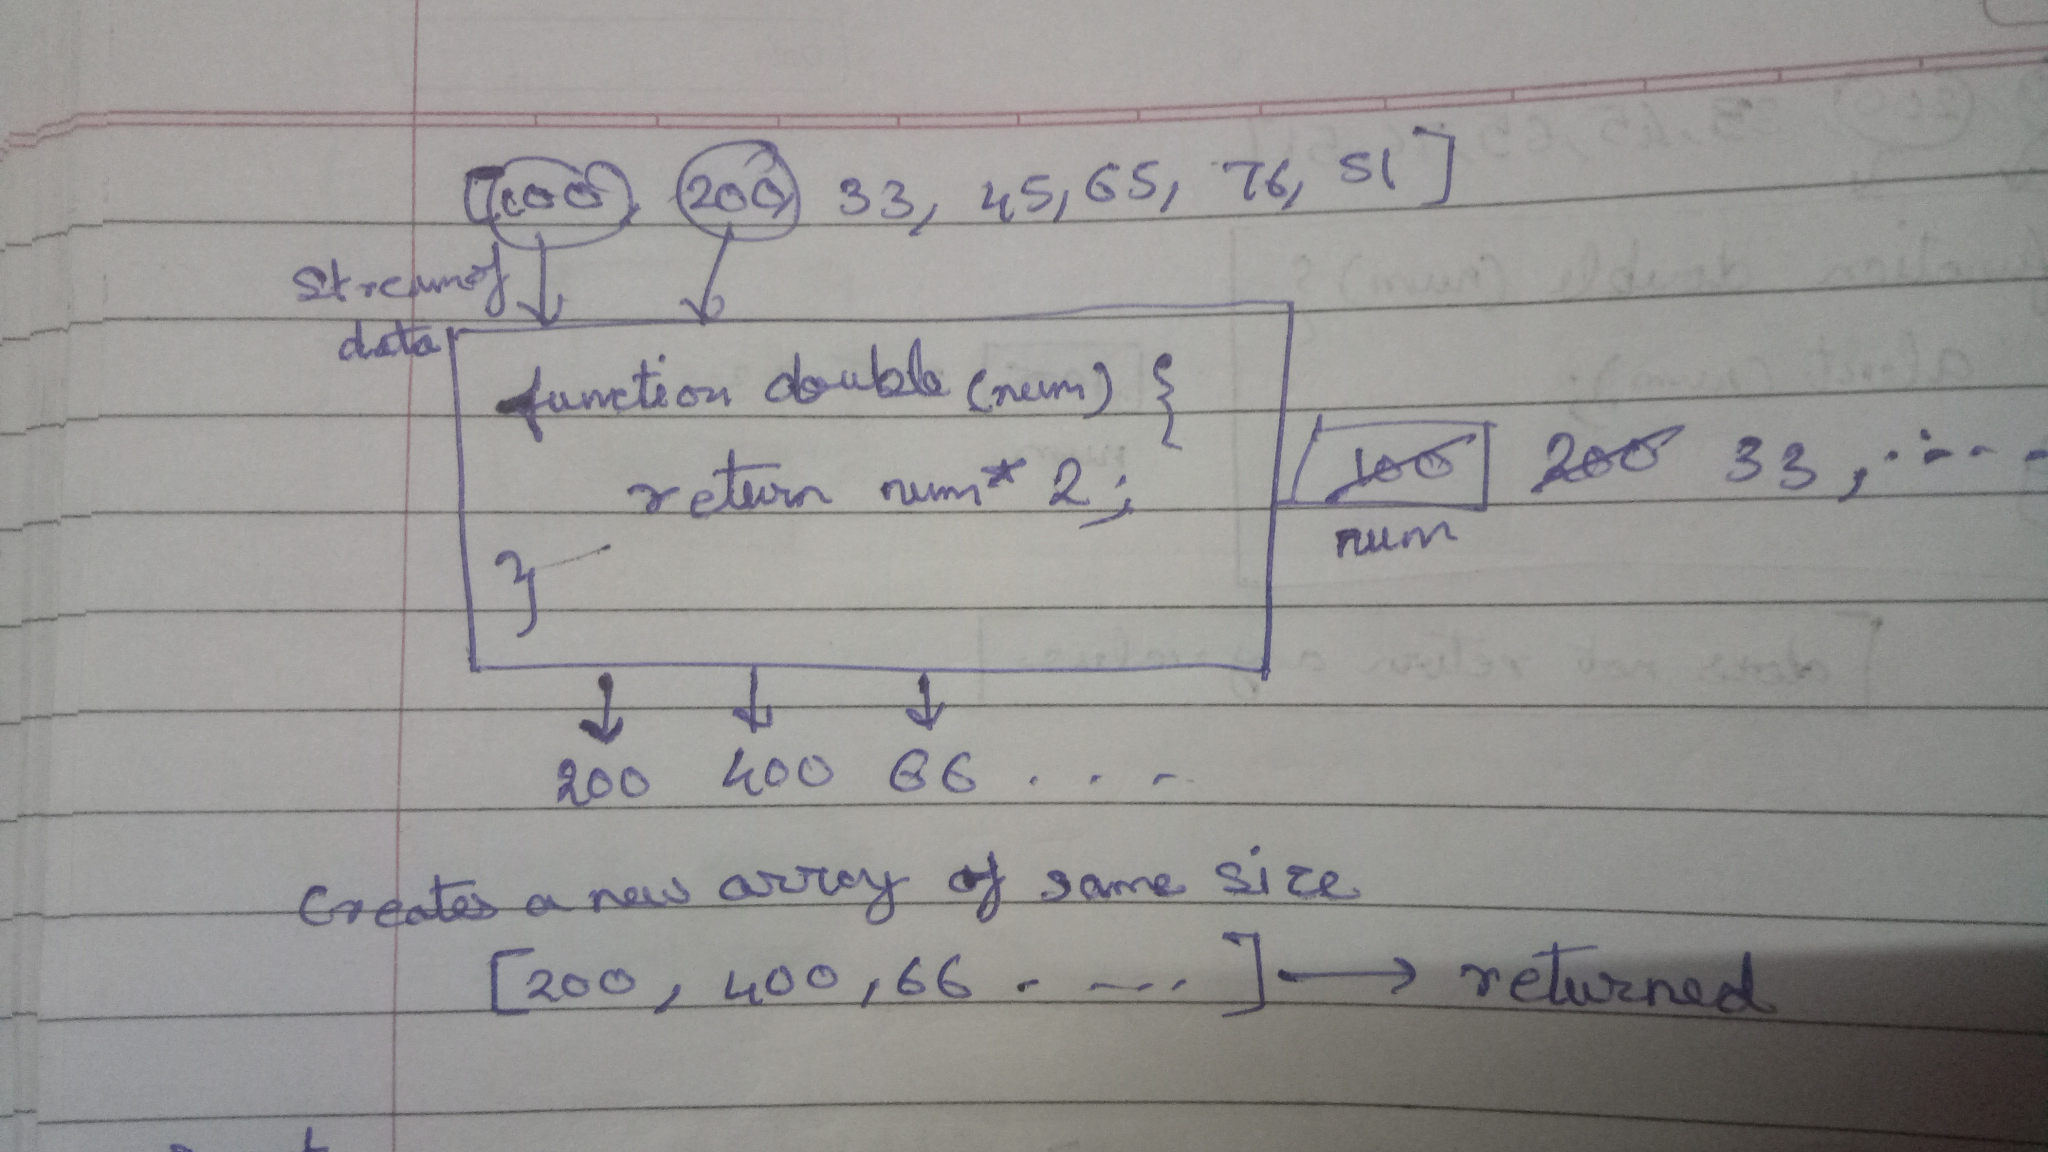 [100, 200, 33, 45, 65, 76, 51]
Stream of
data
function double (num) {
return num * 2;
}
100 200 33, .....
num
200 400 66 . . . .
Creates a new array of same size
[200, 400, 66 . ....] → returned